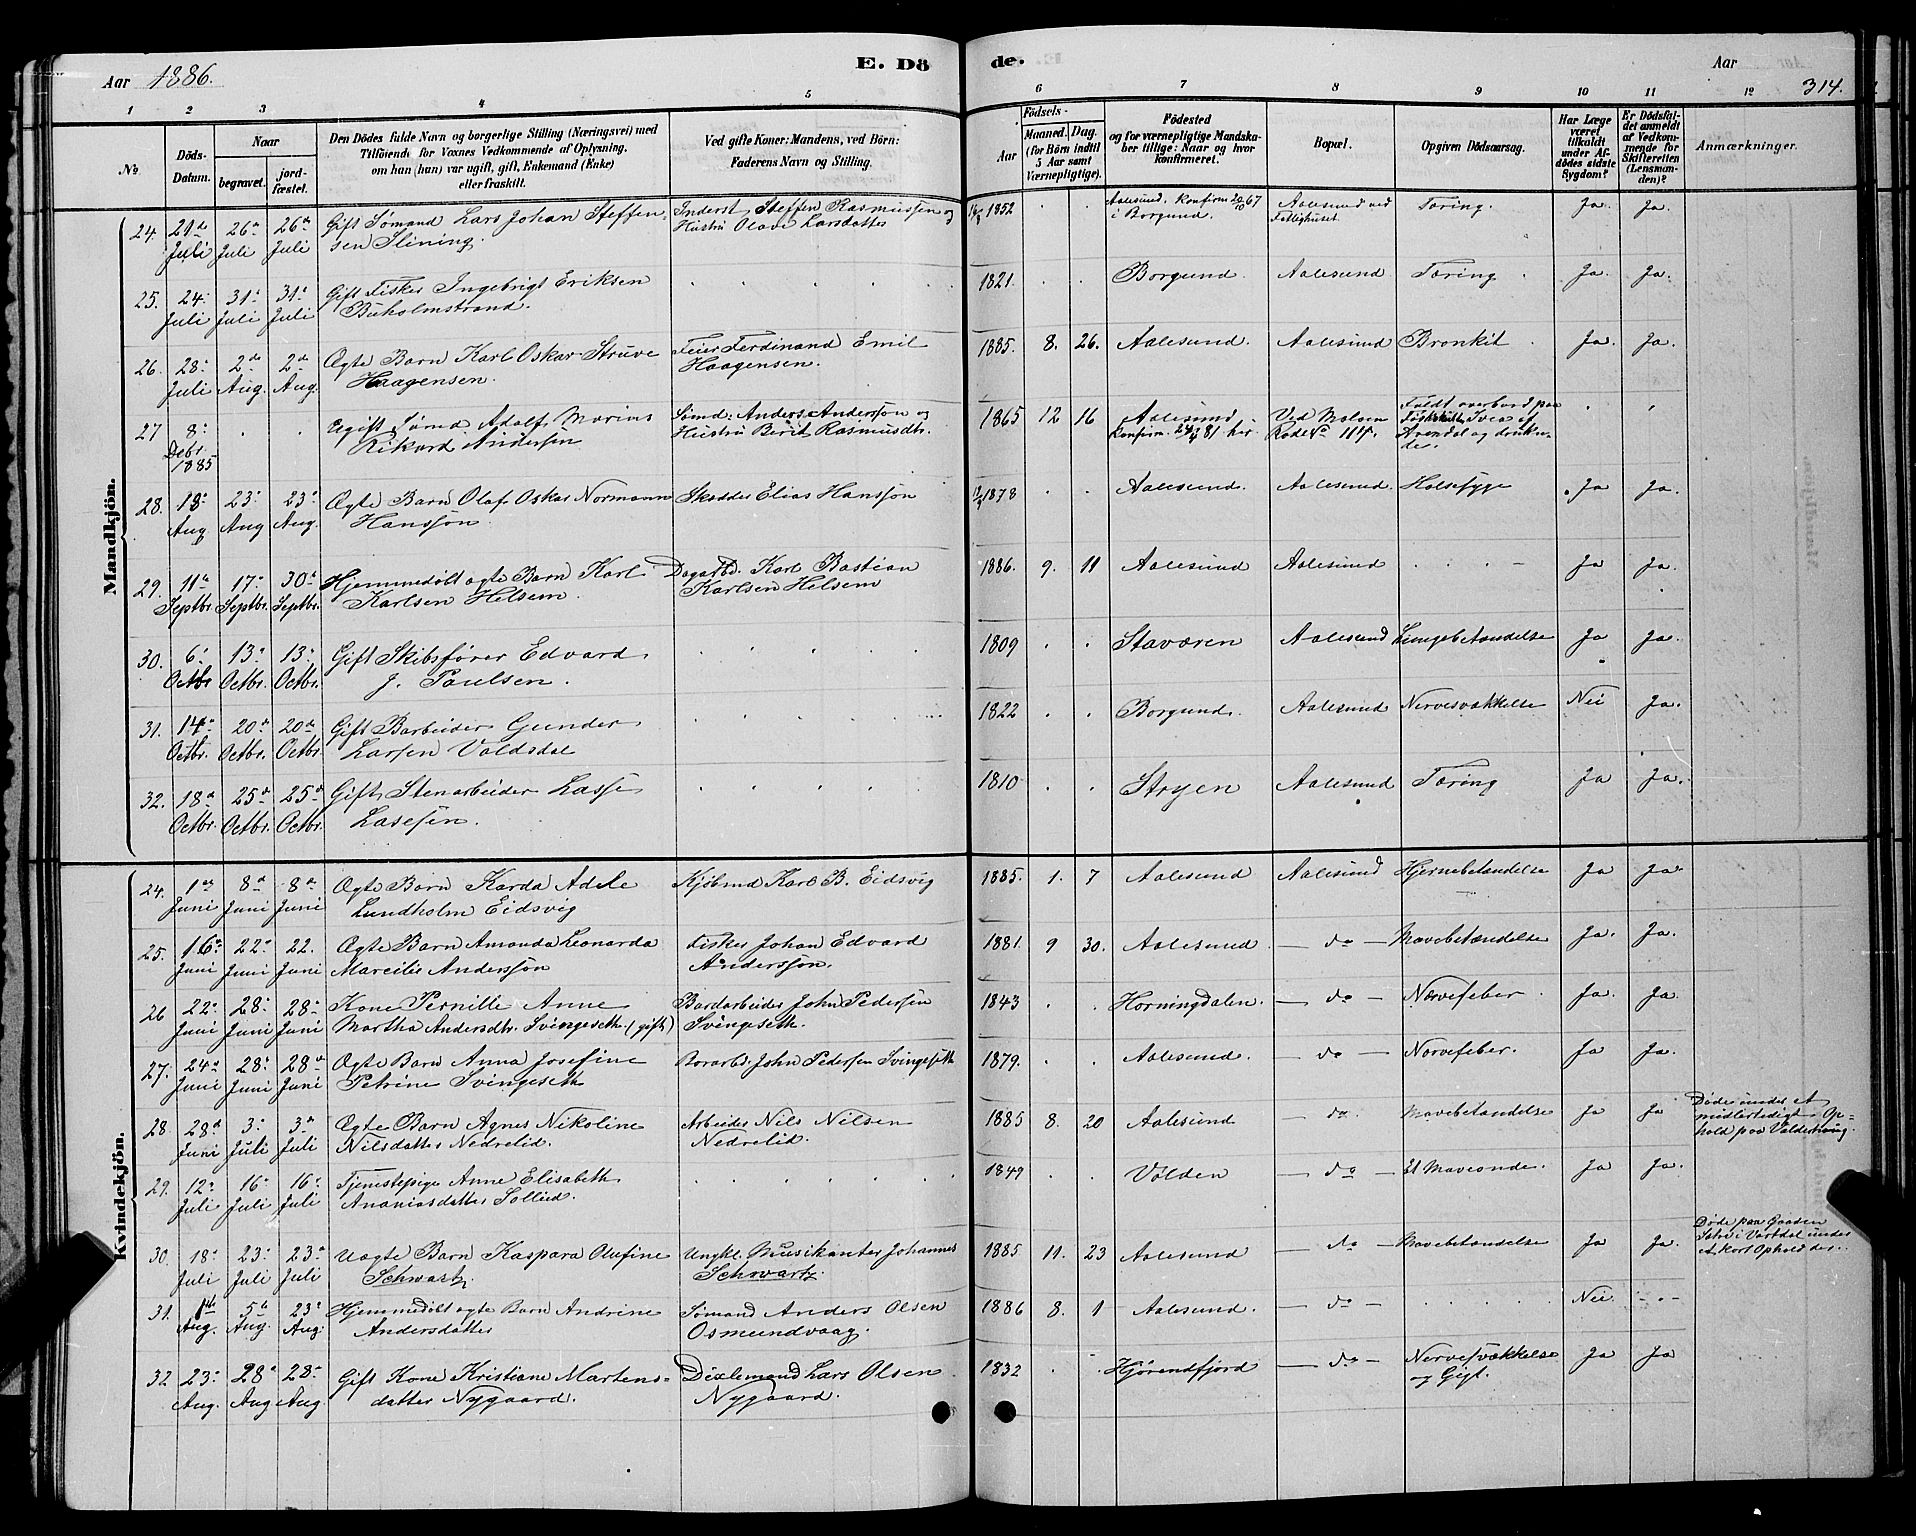 Aar 1886.
E. Dö
de.
Aar
314.
1 2 3 4 5 6 7 8 9 10 11 12
No.
Döds-Datum.
Naar
begravet.
jord-fæstet.
Den Dödes fulde Navn og borgerlige Stilling (Næringsvei) med
Tilföiende for Voxnes Vedkommende af Oplysning,
om han (hun) var ugift, gift, Enkemand (Enke)
eller fraskilt.
Ved gifte Koner: Mandens, ved Börn:
Faderens Navn og Stilling.
Födsels-
Aar
Maaned. Dag.
(for Börn indtil
5 Aar samt
Værnepligtige).
Födested
og for værnepligtige Mandska-
ber tillige: Naar og hvor
konfirmeret.
Bopæl.
Opgiven Dödsaarsag.
Har Læge
været
tilkaldt
under Af-
dödes sidste
Sygdom?
Er Dödsfal-
det anmeldt
af Vedkom-
mende for
Skifteretten
(Lensman-
den)?
Anmærkninger.
Mandkjön.
24. 21de Juli 26de Juli 26de Juli Gift Sømand Lars Johan Steffen-
sen Slining. Inderst Steffen Rasmussen og
Hustru Olave Larsdatter 1852 Aalesund. Konfirm 20/10 67
i Borgund. Aalesund ved
Fattighuset. Tæring. Ja. Ja.
25. 24. Juli 31. Juli 31. Juli Gift Fisker Ingebrigt Eriksen
Buholmstrand. 1821. Borgund. Aalesund. Tæring Ja. Ja.
26. 28. Juli 2de Aug. 2de Aug. Ægte Barn Karl Oskar Struve
Haagensen. Feier Ferdinand Emil
Haagensen. 1885. 8. 26. Aalesund. Aalesund Bronkit Ja. Ja.
27 8. Debr. 1885 Ugift Sømd Adolf Marius
Rikard Andersen Sømd: Anders Andersøn og
Hustru Berit Rasmusdtr. 1865 12 16 Aalesund.
Konfirm. 24/4 81 her. Ved Molven
Rode No 114. Faldt overbord fra
Svea af
Arendal og drukne-
de.
28. 18. Aug 23. Aug 23. Aug. Ægte Barn Olaf Oskar Normann
Hanssøn. Skrædder Elias Hanssøn 1878 Aalesund. Aalesund. Halssyge Ja Ja.
29. 11te Septbr. 17. Septbr. 30te Septbr. Hjemmedøbt ægte Barn Karl
Karlsen Helsem. Dagarbd. Karl Bastian
Karlsen Helsem 1886. 9. 11 Aalesund Aalesund Ja Ja.
30. 6. Octbr 13. Octbr. 13. Octbr. Gift Skibsfører Edvard
J. Paulsen. 1809 Staværen Aalesund Lungebetændelse Ja Ja.
31. 14. Octbr. 20de Octbr. 20de Octbr. Gift Barbeider Gunder
Larsen Valdsdal 1822 Borgund. Aalesund Nervesvækkelse Nei Ja.
32. 18de Octbr. 25de Octbr. 25de Octbr. Gift Stenarbeider Lasse
Lassesen. 1810 Stryen Aalesund Tæring Ja Ja.
Kvindekjön.
24. 1ste Juni 8de Juni 8de Juni Ægte Barn Karda Adele
Lundholm Eidsvig Kjøbmd Karl B. Eidsvig 1885. 1. 7 Aalesund Aalesund Hjernebetændelse Ja Ja.
25. 16de Juni 22de Juni 22. Juni Ægte Barn Amanda Leonarda
Mareilie Anderssøn Fisker Johan Edvard
Anderssøn. 1881. 9 30. Aalesund — do — Mavebetændelse Ja. Ja.
26 22. Juni 28. Juni 28. Juni Kone Pernille Anne
Martha Andersdtr. Svingeseth. (gift) Bordarbeider John Pedersen
Svingeseth. 1843 Horningdalen. — do — Nervefeber. Ja. Ja.
27. 24de Juni 28. Juni 28de Juni Ægte Barn Anna Josefine
Petrine Svingeseth Borarbd. John Pedersen Svingeseth 1879. Aalesund. — do — Nervefeber. Ja Ja.
28. 28de Juni 3. Juli 3die Juli Ægte Barn Agnes Nikoline
Nilsdatter Nedrelid. Arbeider Nils Nilsen
Nedrelid. 1885 8. 20 Aalesund — do. Mavebetændelse Ja Ja Døde under et
midlertidigt Op-
hold paa Valderhaug.
29. 12te Juli 16. Juli 16. Juli Tjenestepige Anne Elisabeth
Ananiasdatter Sollied. 1849 Volden — do — Et Maveonde. Ja Ja.
30. 18. Juli 23. Juli 23de Juli Uægte Barn Kaspara Olufine
Schwartz. Ungkl. Musikanter Johannes
Schwartz. 1885 11. 23 Aalesund — do — Mavebetændelse Ja Ja. Døde paa Gaarden
Sætre i Vartdal under
et kort Ophold der.
31. 1ste Aug. 5te Aug. 23. Aug. Hjemmedøbt ægte Barn Andrine
Andersdatter Sømand Anders Olsen
Osmundvaag. 1886 8. 1 Aalesund. — do — Nei
32 23. Aug. 28de Aug 28. Aug. Gift Kone Kristiane Martens-
datter Nygaard. Dixlemand Lars Olsen
Nygaard. 1832 Hjørendfjord — do — Nervesvækkelse
og Gigt. Ja Ja